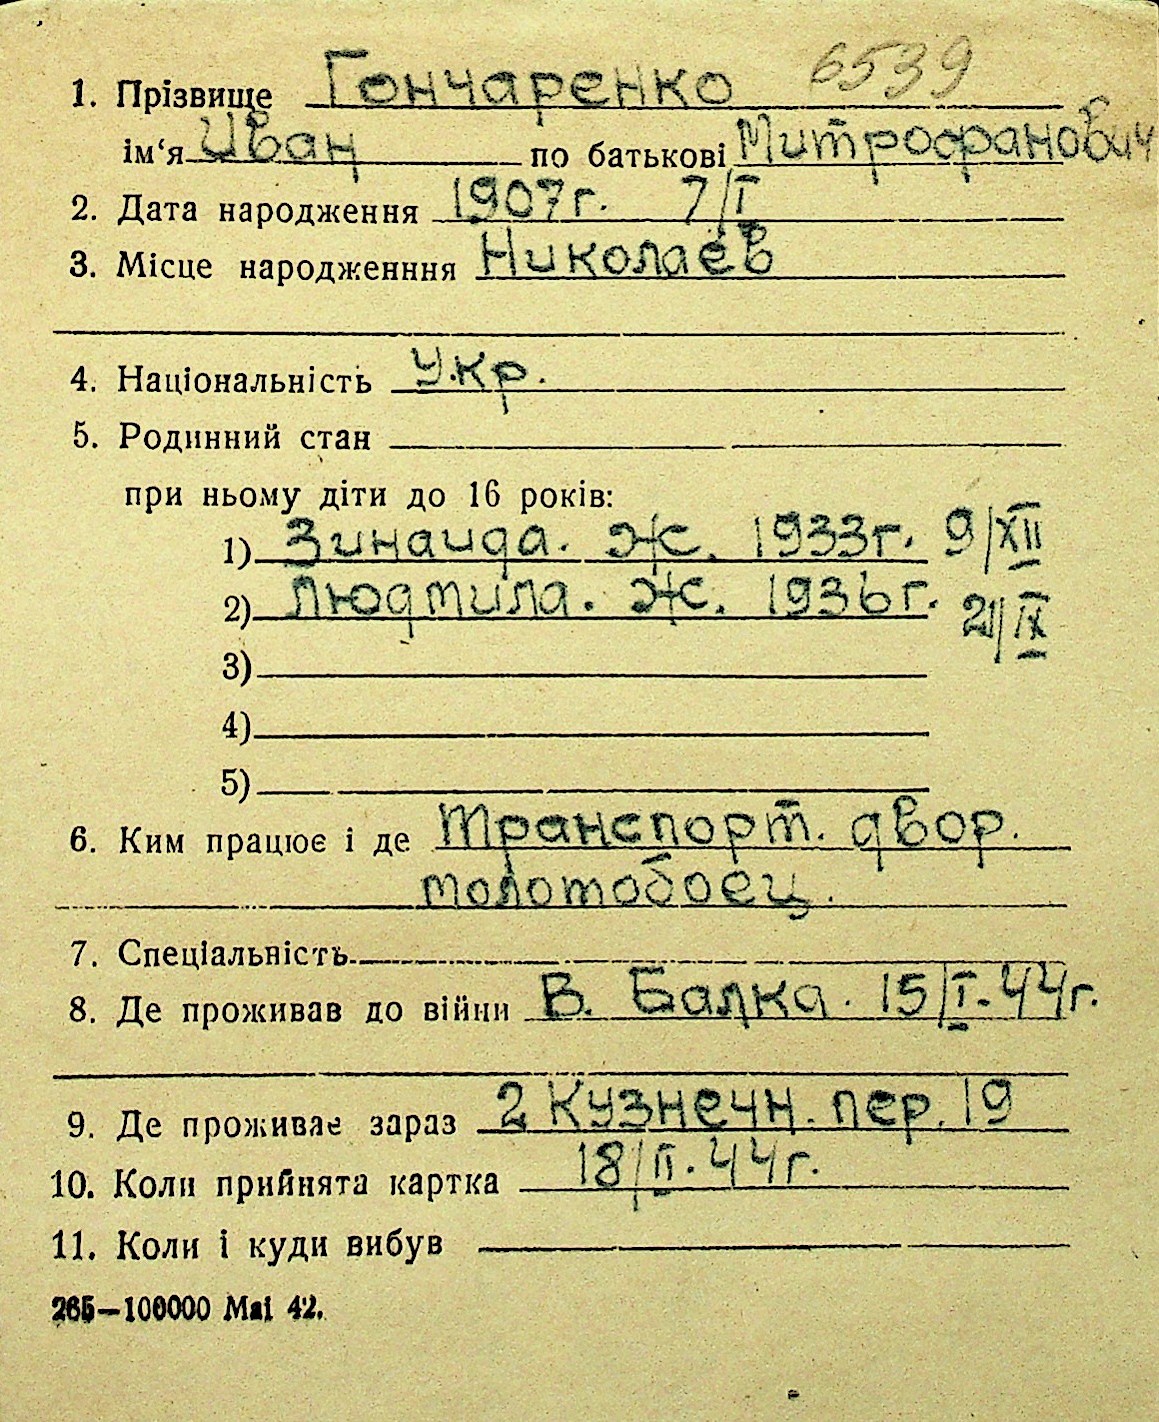 1. Прізвище Гончаренко 6539
ім‘я Иван по батькові Митрофанович
2. Дата народження 1907г. 7/I
3. Місце народженння Николаев
4. Національність Укр.
5. Родинний стан
при ньому діти до 16 років:
1) Зинаида. Ж. 1933г. 9/XII
2) Людмила. Ж. 1936г. 21/IX
3)
4)
5)
6. Ким працює і де Транспорт. двор.
молотобоец.
7. Спеціальність
8. Де проживав до війни В. Балка. 15/I.44г.
9. Де проживає зараз 2 Кузнечн. пер. 19
10. Коли прийнята картка 18/II.44г.
11. Коли і куди вибув
265—100000 Mai 42.